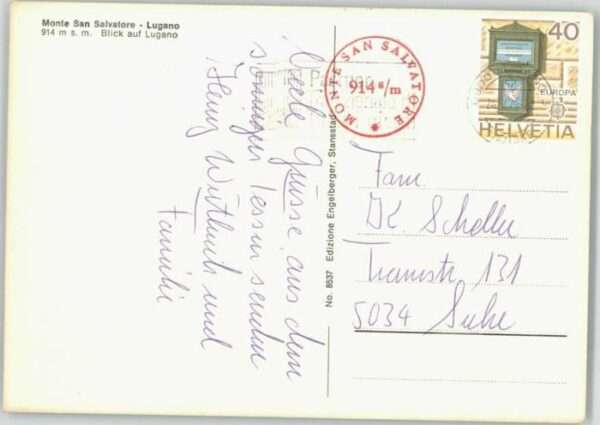 Monte San Salvatore - Lugano
914 m s. m. Blick auf Lugano
Viele Grüsse aus dem
sonnigen Tessin senden
und
Familie
No. 8537 Edizione Engelberger, Stansstad
MONTE SAN SALVATORE
914 m/m
40
EUROPA
HELVETIA
Fam.
K. Scheller
Tramstr. 131
5034 Suhr